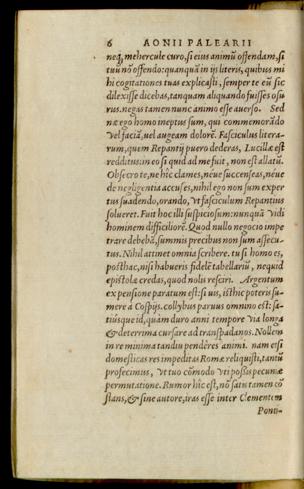 6 AONII PALEARII
neq; mehercule curo, si eius animũ offendam, si
tuũ nõ offendo: quanquã in ijs literis, quibus mi
hi cogitationes tuas explicasti, semper te eũ sic
dilexisse dicebas, tanquam aliquando fuisses osu
rus. negas tamen nunc animo esse auerso. Sed
næ ego homo ineptus sum, qui commemorãdo
vel faciã, uel augeam dolorẽ. Fasciculus litera-
rum, quem Repantij puero dederas, Lucillæ est
redditus: in eo si quid ad me fuit, non est allatũ.
Obsecro te, ne hic clames, neue succenseas, neue
de negligentia accuses, nihil ego non sum exper
tus suadendo, orando, vt fasciculum Repantius
solueret. Fuit hoc illi suspiciosum: nunquã vidi
hominem difficiliorẽ. Quod nullo negocio impe
trare debebã, summis precibus non sum assecu-
tus. Nihil attinet omnia scribere. tu si homo es,
posthac, nisi habueris fidelẽ tabellariũ, nequid
epistolæ credas, quod nolis resciri. Argentum
expensione paratum est: si uis, isthic poteris su-
mere à Cospijs. collybus paruus omnino est: sa-
tiúsque id, quàm duro anni tempore via longa
& deterrima cursare ad transpadanos. Nollem
in re minima tandiu pendêres animi. nam etsi
domesticas res impeditas Romæ reliquisti, tantũ
profecimus, vt tuo cõmodo vti possis pecuniæ
permutatione. Rumor hîc est, nõ satis tamen cõ
stans, & sine autore, iras esse inter Clementem
Ponti-